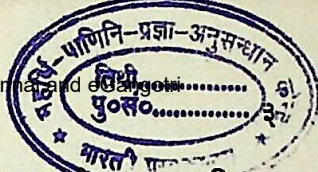 महर्षि-पाणिनि-प्रज्ञा-अनुसन्धान
and eGangotri
तिथी..................
पु०सं०..................
भारती